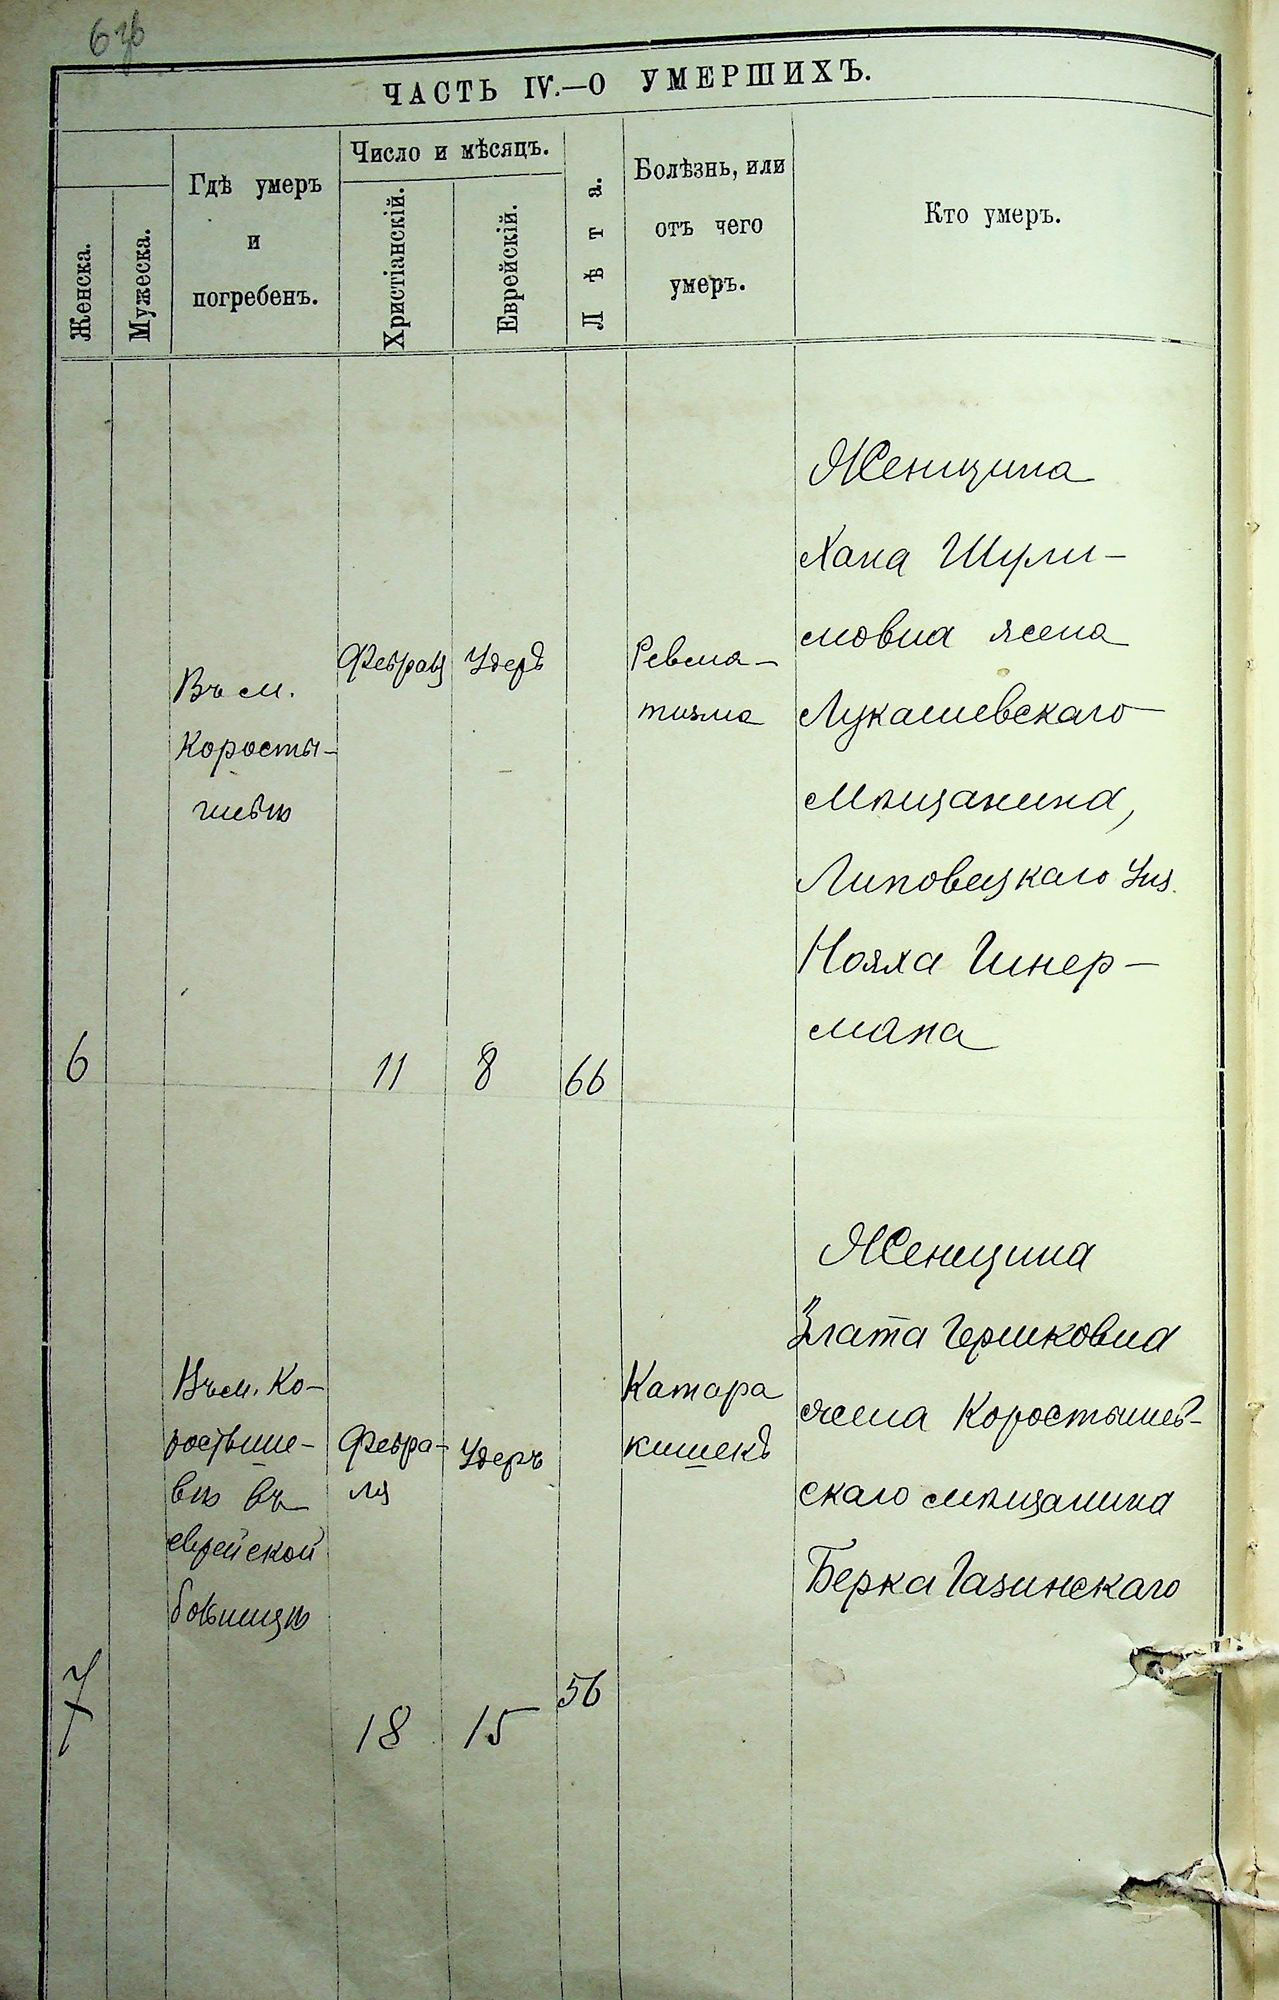 ЧАСТЬ IV.—О УМЕРШИХЪ.
Женска.
Мужеска.
Гдѣ умеръ
и
погребенъ.
Число и мѣсяцъ.
Христіанскій.
Еврейскій.
Лѣта.
Болѣзнь, или
отъ чего
умеръ.
Кто умеръ.
6
Въ м.
Коросты-
шевѣ
Февраля
11
Удеръ
8
66
Ревма-
тизма
Женщина
Хана Шули-
мовна жена
Лукашевскаго
мѣщанина,
Липовецкаго Уѣз.
Нояха Гинер-
мана
7
Въ м. Ко-
ростыше-
вѣ въ
еврейской
больницѣ
Февра-
ля
18
Удеръ
15
56
Катара
кишекъ
Женщина
Злата Гершковна
жена Коростышев-
скаго мѣщанина
Берка Газинскаго